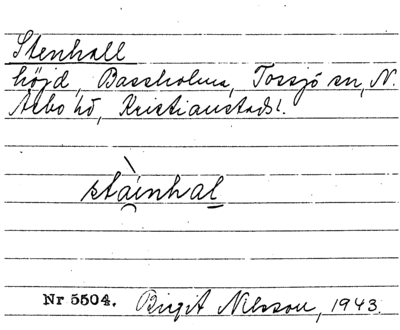 Stenhall
höjd, Bassholma, Torsjö sn, N.
Åsbo hd, Kristianstads l.
stàinhal
Nr 5504. Birgit Nilsson, 1943.